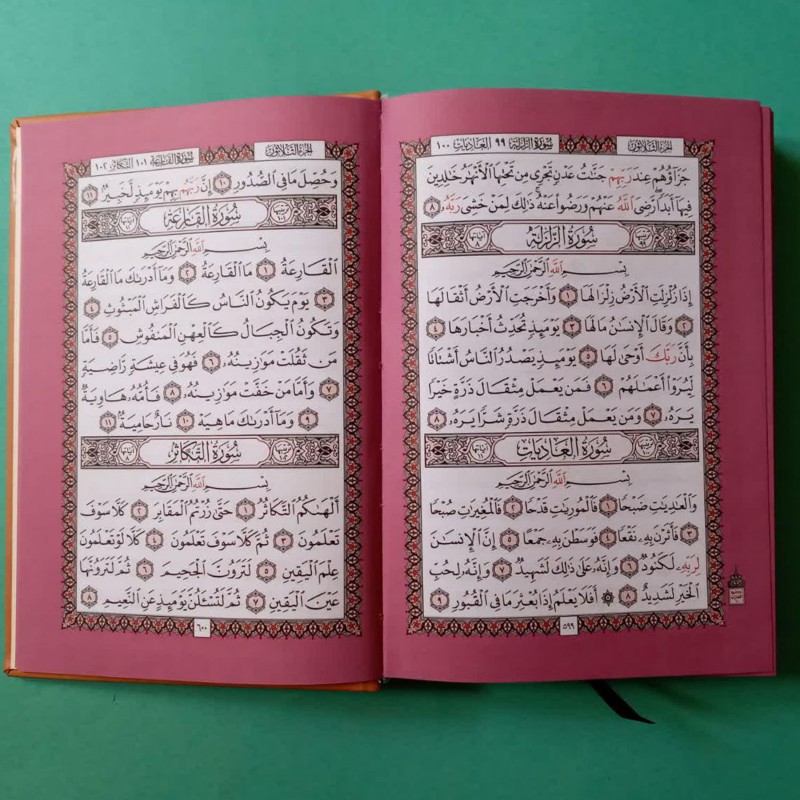 الجزء الثلاثون
سورة الزلزلة ٩٩ العاديات ١٠٠
جَزَآؤُهُمْ عِندَ رَبِّهِمْ جَنَّٰتُ عَدْنٍ تَجْرِى مِن تَحْتِهَا ٱلْأَنْهَٰرُ خَٰلِدِينَ
فِيهَآ أَبَدًا رَّضِىَ ٱللَّهُ عَنْهُمْ وَرَضُوا۟ عَنْهُ ذَٰلِكَ لِمَنْ خَشِىَ رَبَّهُۥ ٨
سُورَةُ الزَّلْزَلَةِ
بِسْمِ ٱللَّهِ ٱلرَّحْمَٰنِ ٱلرَّحِيمِ
إِذَا زُلْزِلَتِ ٱلْأَرْضُ زِلْزَالَهَا ١ وَأَخْرَجَتِ ٱلْأَرْضُ أَثْقَالَهَا
٢ وَقَالَ ٱلْإِنسَٰنُ مَا لَهَا ٣ يَوْمَئِذٍ تُحَدِّثُ أَخْبَارَهَا ٤
بِأَنَّ رَبَّكَ أَوْحَىٰ لَهَا ٥ يَوْمَئِذٍ يَصْدُرُ ٱلنَّاسُ أَشْتَاتًا
لِّيُرَوْا۟ أَعْمَٰلَهُمْ ٦ فَمَن يَعْمَلْ مِثْقَالَ ذَرَّةٍ خَيْرًا
يَرَهُۥ ٧ وَمَن يَعْمَلْ مِثْقَالَ ذَرَّةٍ شَرًّا يَرَهُۥ ٨
سُورَةُ العَادِيَاتِ
بِسْمِ ٱللَّهِ ٱلرَّحْمَٰنِ ٱلرَّحِيمِ
وَٱلْعَٰدِيَٰتِ ضَبْحًا ١ فَٱلْمُورِيَٰتِ قَدْحًا ٢ فَٱلْمُغِيرَٰتِ صُبْحًا
٣ فَأَثَرْنَ بِهِۦ نَقْعًا ٤ فَوَسَطْنَ بِهِۦ جَمْعًا ٥ إِنَّ ٱلْإِنسَٰنَ
لِرَبِّهِۦ لَكَنُودٌ ٦ وَإِنَّهُۥ عَلَىٰ ذَٰلِكَ لَشَهِيدٌ ٧ وَإِنَّهُۥ لِحُبِّ
ٱلْخَيْرِ لَشَدِيدٌ ٨ ۞ أَفَلَا يَعْلَمُ إِذَا بُعْثِرَ مَا فِى ٱلْقُبُورِ ٩
٥٩٩
الجزء الثلاثون
سورة القارعة ١٠١ التكاثر ١٠٢
وَحُصِّلَ مَا فِى ٱلصُّدُورِ ١٠ إِنَّ رَبَّهُم بِهِمْ يَوْمَئِذٍ لَّخَبِيرٌۢ ١١
سُورَةُ القَارِعَةِ
بِسْمِ ٱللَّهِ ٱلرَّحْمَٰنِ ٱلرَّحِيمِ
ٱلْقَارِعَةُ ١ مَا ٱلْقَارِعَةُ ٢ وَمَآ أَدْرَىٰكَ مَا ٱلْقَارِعَةُ
٣ يَوْمَ يَكُونُ ٱلنَّاسُ كَٱلْفَرَاشِ ٱلْمَبْثُوثِ ٤
وَتَكُونُ ٱلْجِبَالُ كَٱلْعِهْنِ ٱلْمَنفُوشِ ٥ فَأَمَّا
مَن ثَقُلَتْ مَوَٰزِينُهُۥ ٦ فَهُوَ فِى عِيشَةٍ رَّاضِيَةٍ
٧ وَأَمَّا مَنْ خَفَّتْ مَوَٰزِينُهُۥ ٨ فَأُمُّهُۥ هَاوِيَةٌ
٩ وَمَآ أَدْرَىٰكَ مَا هِيَهْ ١٠ نَارٌ حَامِيَةٌۢ ١١
سُورَةُ التَّكَاثُرِ
بِسْمِ ٱللَّهِ ٱلرَّحْمَٰنِ ٱلرَّحِيمِ
أَلْهَىٰكُمُ ٱلتَّكَاثُرُ ١ حَتَّىٰ زُرْتُمُ ٱلْمَقَابِرَ ٢ كَلَّا سَوْفَ
تَعْلَمُونَ ٣ ثُمَّ كَلَّا سَوْفَ تَعْلَمُونَ ٤ كَلَّا لَوْ تَعْلَمُونَ
عِلْمَ ٱلْيَقِينِ ٥ لَتَرَوُنَّ ٱلْجَحِيمَ ٦ ثُمَّ لَتَرَوُنَّهَا
عَيْنَ ٱلْيَقِينِ ٧ ثُمَّ لَتُسْـَٔلُنَّ يَوْمَئِذٍ عَنِ ٱلنَّعِيمِ ٨
٦٠٠